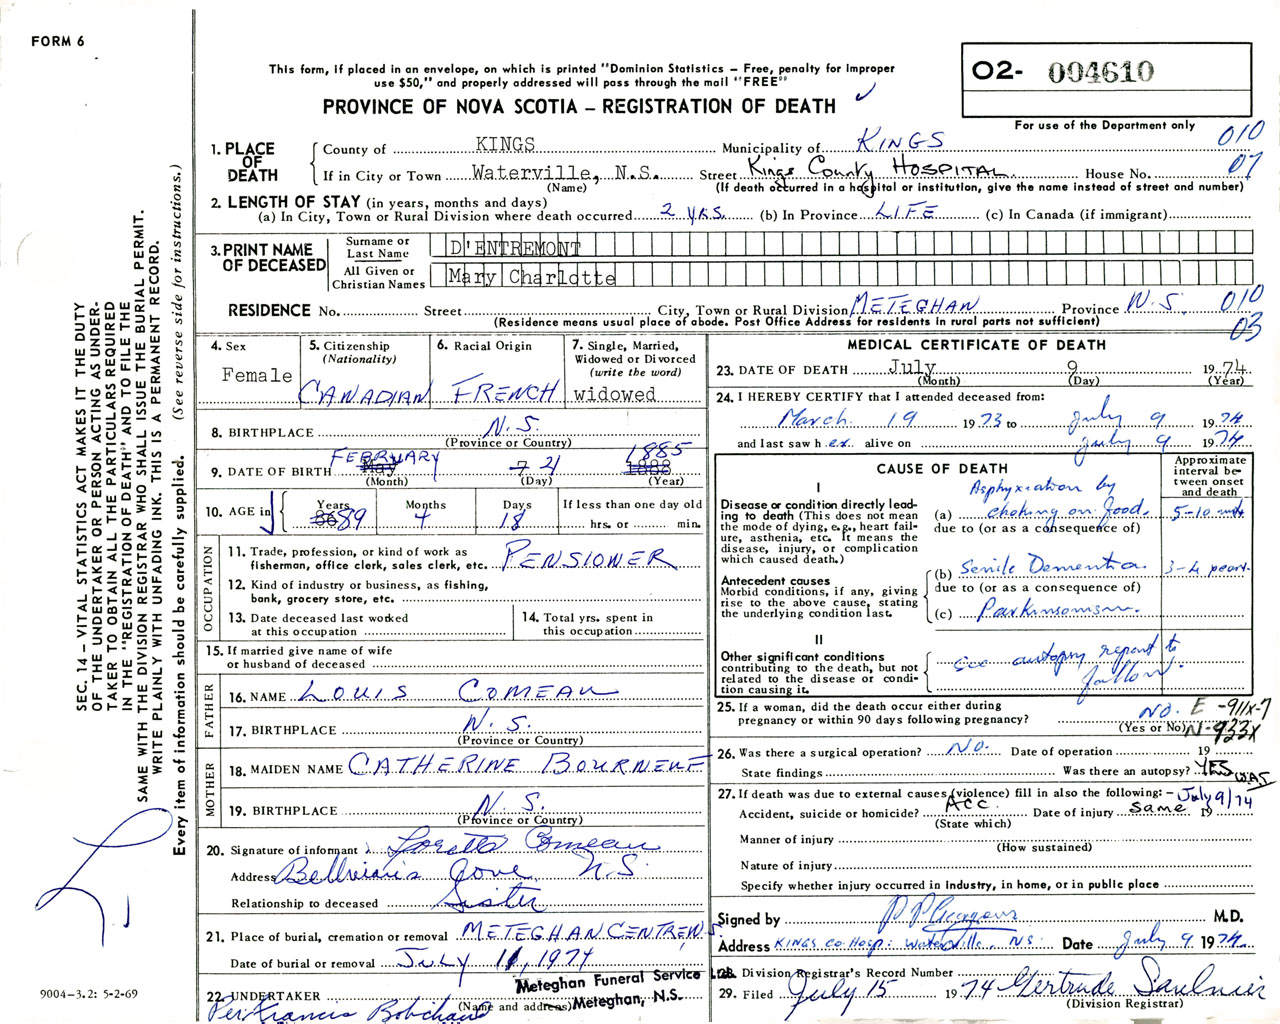 FORM 6
This form, if placed in an envelope, on which is printed "Dominion Statistics – Free, penalty for improper
use $50," and properly addressed will pass through the mail "FREE"
O2- 004610
PROVINCE OF NOVA SCOTIA – REGISTRATION OF DEATH
For use of the Department only
1. PLACE OF DEATH
County of KINGS Municipality of KINGS 010
If in City or Town Waterville, N.S. Street Kings County HOSPITAL House No. 07
(Name) (If death occurred in a hospital or institution, give the name instead of street and number)
2. LENGTH OF STAY (in years, months and days)
(a) In City, Town or Rural Division where death occurred 2 YRS. (b) In Province LIFE (c) In Canada (if immigrant)
3. PRINT NAME OF DECEASED
Surname or Last Name D'ENTREMONT
All Given or Christian Names Mary Charlotte
RESIDENCE No. Street City, Town or Rural Division METEGHAN Province N.S. 010
(Residence means usual place of abode. Post Office Address for residents in rural parts not sufficient) 03
4. Sex
Female
5. Citizenship
(Nationality)
CANADIAN
6. Racial Origin
FRENCH
7. Single, Married,
Widowed or Divorced
(write the word)
widowed
8. BIRTHPLACE N.S.
(Province or Country)
9. DATE OF BIRTH May FEBRUARY 7 21 1888 1885
(Month) (Day) (Year)
10. AGE in
Years Months Days If less than one day old
86 89 4 18 hrs. or min.
OCCUPATION
11. Trade, profession, or kind of work as
fisherman, office clerk, sales clerk, etc. PENSIONER
12. Kind of industry or business, as fishing,
bank, grocery store, etc.
13. Date deceased last worked
at this occupation
14. Total yrs. spent in
this occupation
15. If married give name of wife
or husband of deceased
FATHER
16. NAME LOUIS COMEAU
17. BIRTHPLACE N.S.
(Province or Country)
MOTHER
18. MAIDEN NAME CATHERINE BOURNEUF
19. BIRTHPLACE N.S.
(Province or Country)
20. Signature of informant Loretta Comeau
Address Belliveau's Cove N.S
Relationship to deceased Sister
21. Place of burial, cremation or removal METEGHAN CENTRE N.S.
Date of burial or removal JULY 11, 1974
22. UNDERTAKER
(Name and address)
Meteghan Funeral Service Ltd.
Meteghan, N.S.
Per Francis
MEDICAL CERTIFICATE OF DEATH
23. DATE OF DEATH July 9 1974
(Month) (Day) (Year)
24. I HEREBY CERTIFY that I attended deceased from:
March 19 1973 to July 9 1974
and last saw h er alive on July 9 1974
CAUSE OF DEATH
Approximate interval between onset and death
I
Disease or condition directly leading to death (This does not mean the mode of dying, e.g., heart failure, asthenia, etc. It means the disease, injury, or complication which caused death.)
Asphyxiation by
(a) choking on food. 5-10 mts
due to (or as a consequence of)
Antecedent causes
Morbid conditions, if any, giving rise to the above cause, stating the underlying condition last.
(b) Senile Dementia 3-4 years.
due to (or as a consequence of)
(c) Parkinsonism.
II
Other significant conditions
contributing to the death, but not related to the disease or condition causing it.
see autopsy report to
follow.
25. If a woman, did the death occur either during
pregnancy or within 90 days following pregnancy? NO.
(Yes or No)
E -911X-7
N-933X
26. Was there a surgical operation? NO. Date of operation 19
State findings Was there an autopsy? YES
27. If death was due to external causes (violence) fill in also the following:– July 9/74
Accident, suicide or homicide? Acc. Date of injury same 19
(State which)
Manner of injury
(How sustained)
Nature of injury
Specify whether injury occurred in industry, in home, or in public place
Signed by M.D.
Address KINGS Co. Hosp. Waterville, NS. Date July 9 1974
28. Division Registrar's Record Number
29. Filed July 15 1974 Gertrude Saulnier
(Division Registrar)
SEC. 14 – VITAL STATISTICS ACT MAKES IT THE DUTY
OF THE UNDERTAKER OR PERSON ACTING AS UNDER-
TAKER TO OBTAIN ALL THE PARTICULARS REQUIRED
IN THE "REGISTRATION OF DEATH" AND TO FILE THE
SAME WITH THE DIVISION REGISTRAR WHO SHALL ISSUE THE BURIAL PERMIT.
WRITE PLAINLY WITH UNFADING INK. THIS IS A PERMANENT RECORD.
Every item of information should be carefully supplied. (See reverse side for instructions.)
9004-3.2: 5-2-69